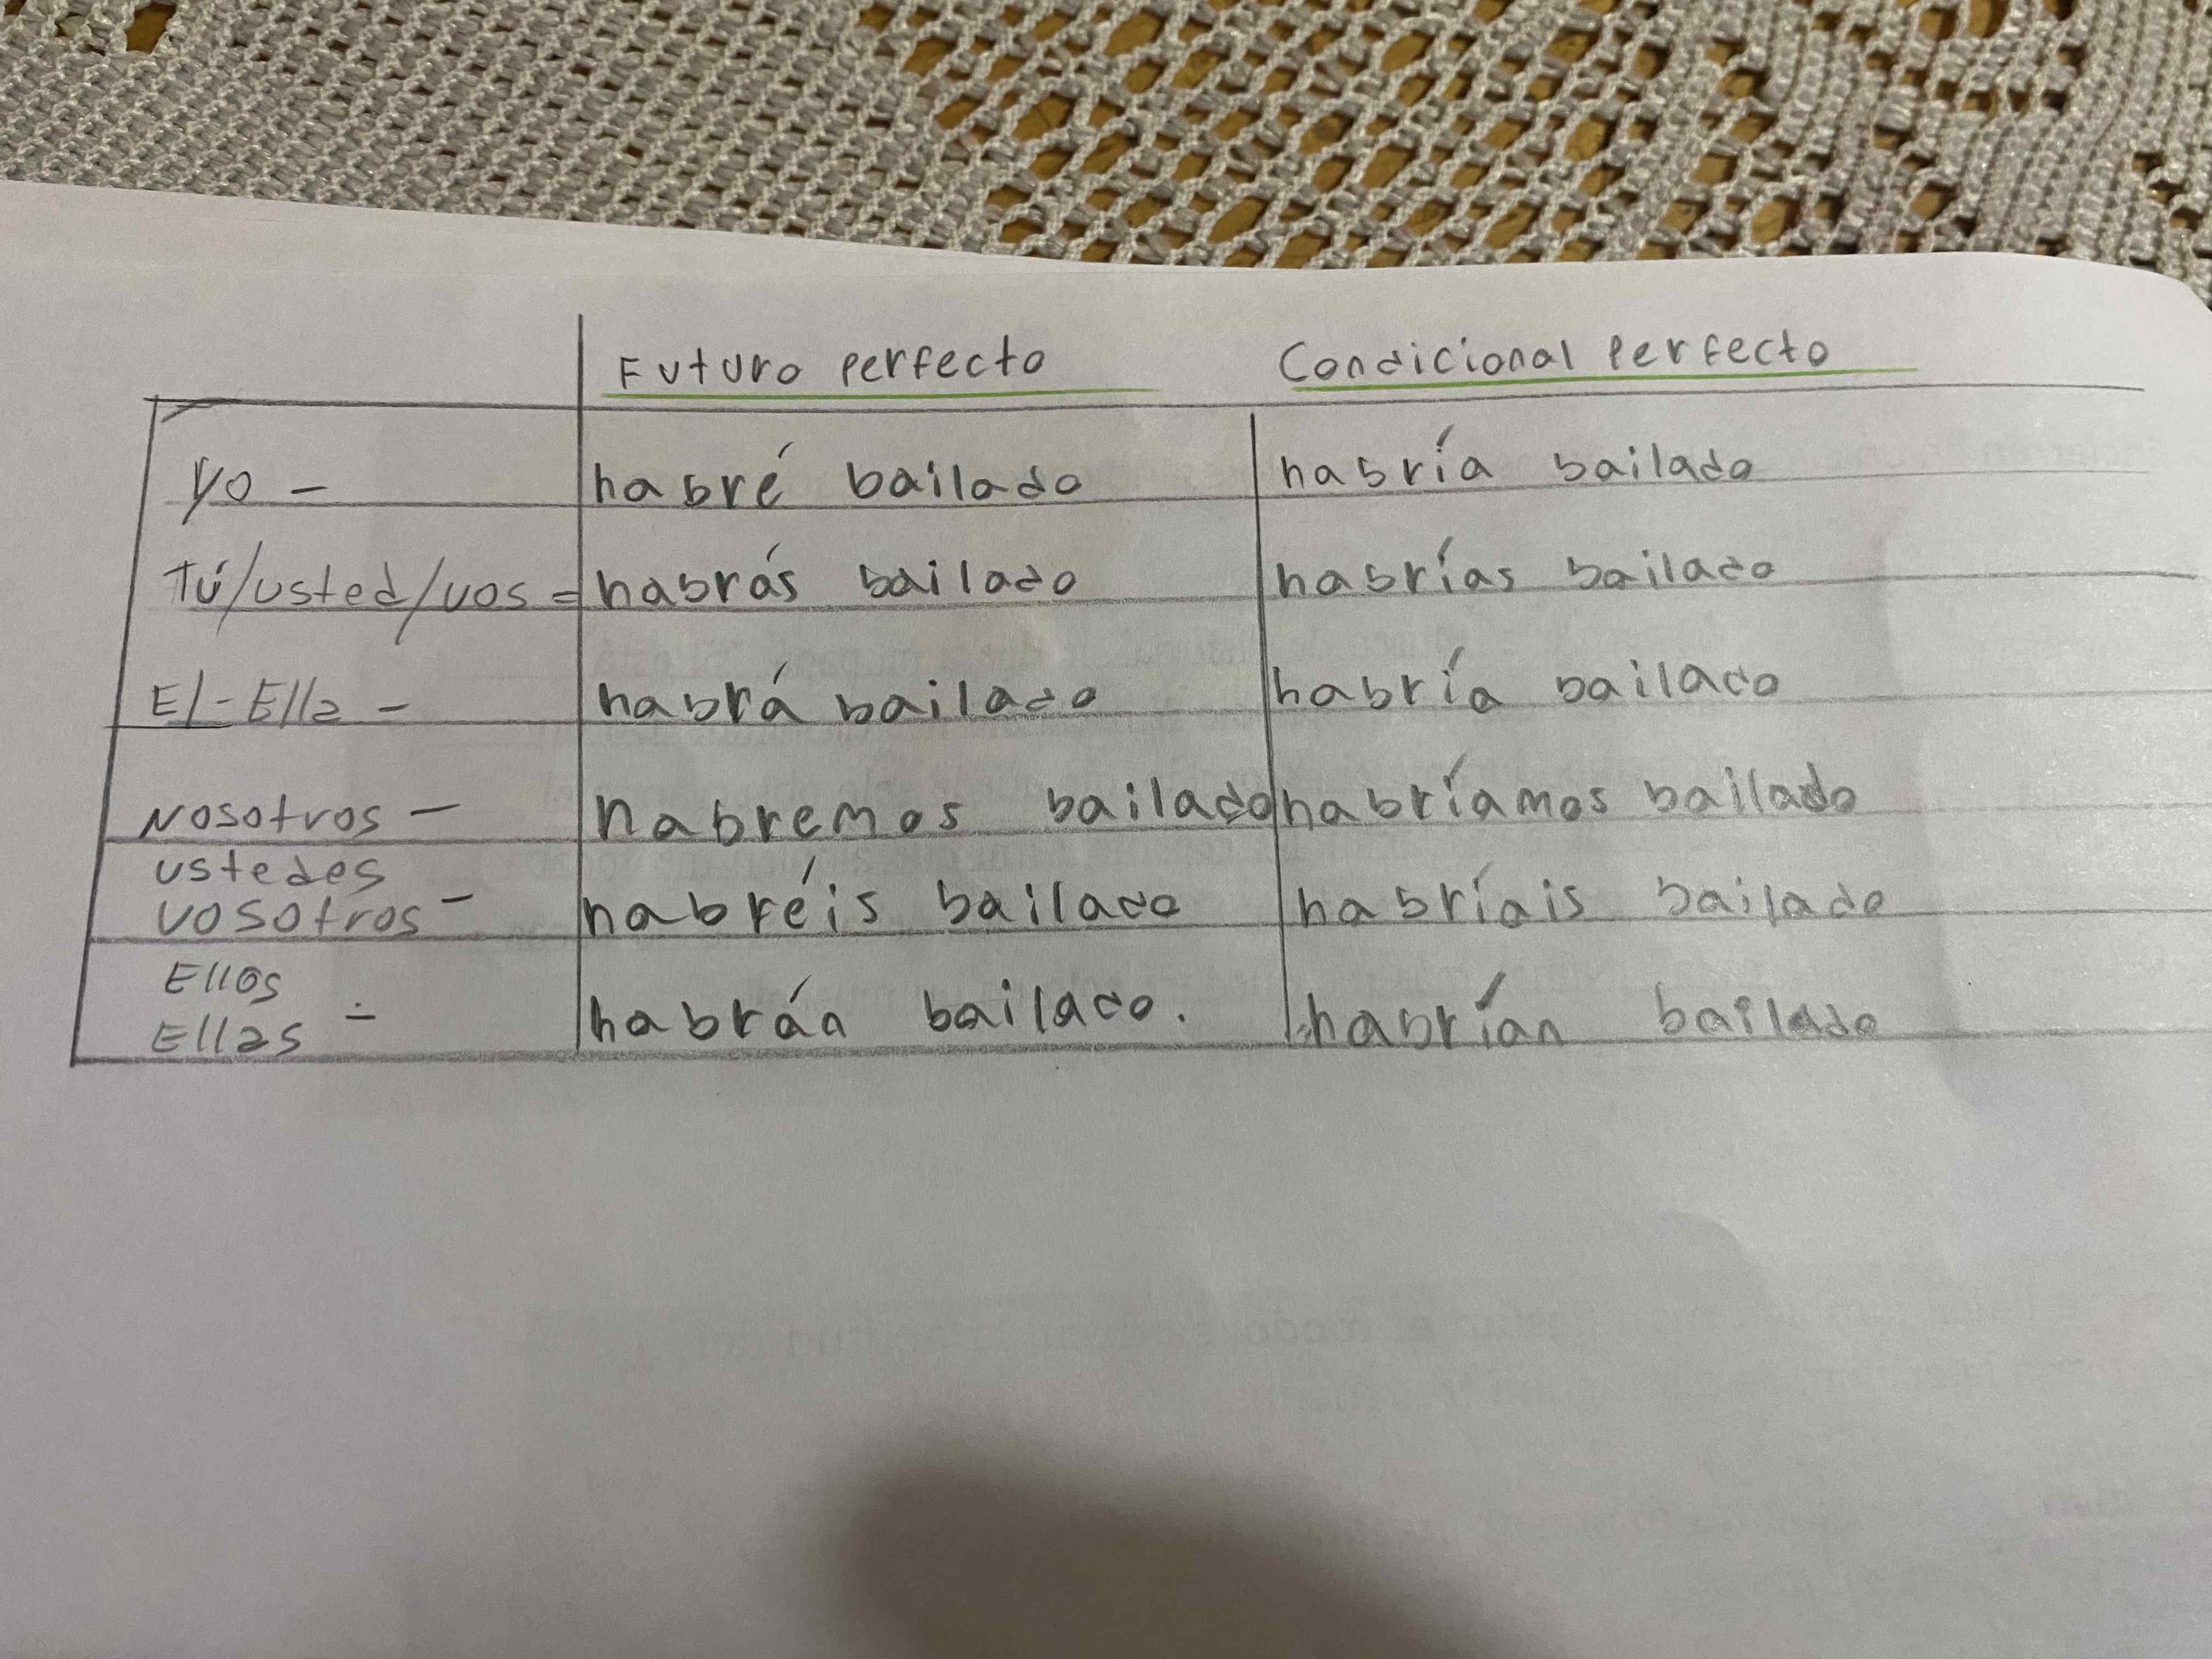 Futuro perfecto Condicional perfecto
Yo - habré bailado habría bailado
Tú/usted/vos = habrás bailado habrías bailado
El - Ella - habrá bailado habría bailado
Nosotros - habremos bailado habríamos bailado
ustedes
vosotros - habréis bailado habríais bailado
Ellos
Ellas - habrán bailado. habrían bailado